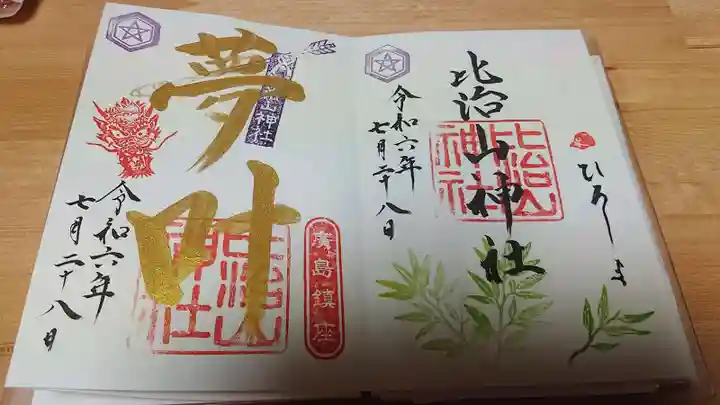 ひろしま
比治山神社
比治山神社
令和六年
七月二十八日
夢叶
山神社
廣島鎮座
比治山
神社
令和六年
七月二十八日